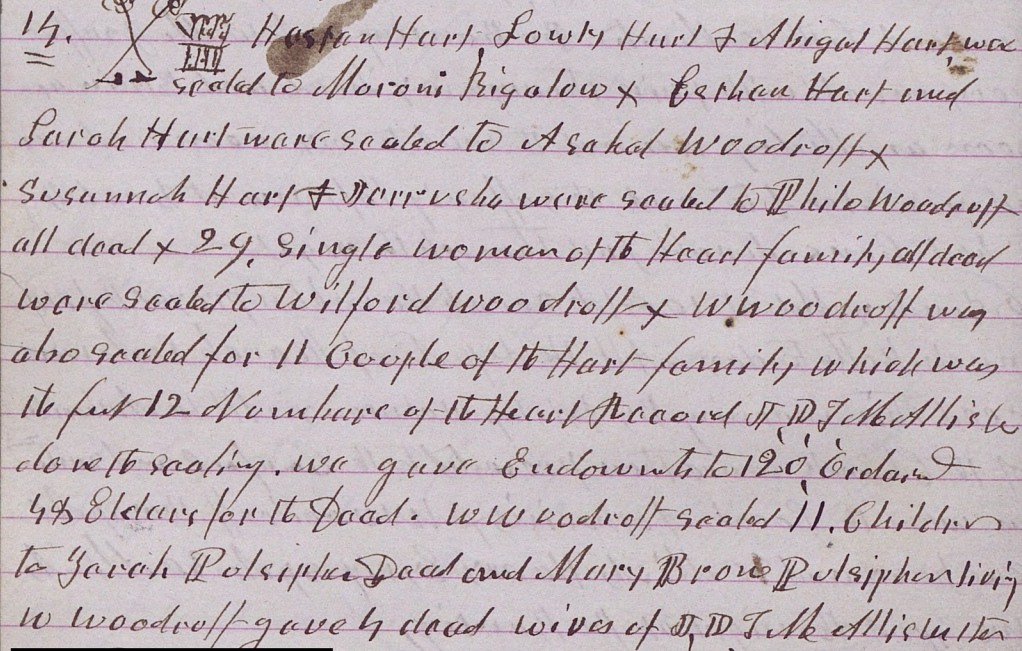 14. Hastan Hart, Lowly Hart & Abigal Hart, was
sealed to Moroni Bigalow x Hart and
Sarah Hart ware sealed to Asahel Woodroff x
Susannah Hart & Jerrusha ware sealed to Philo Woodroff
all dead x 29, single woman of the Heart family, all dead
ware sealed to Wilford Woodroff x W Woodroff was
also sealed for 11 Couple of the Hart family which was
the fust 12 Numbare of the Heart Record J. D. T. McAllister
done the sealing. we gave Endowmts to 120, Ordaind
48 Eldars for the Dead. W Woodroff sealed 11. Children
to Zarah Pulsipher Dead and Mary Brown Pulsipher living
W Woodroff gave 4 dead wives of J. D. T. McAllister